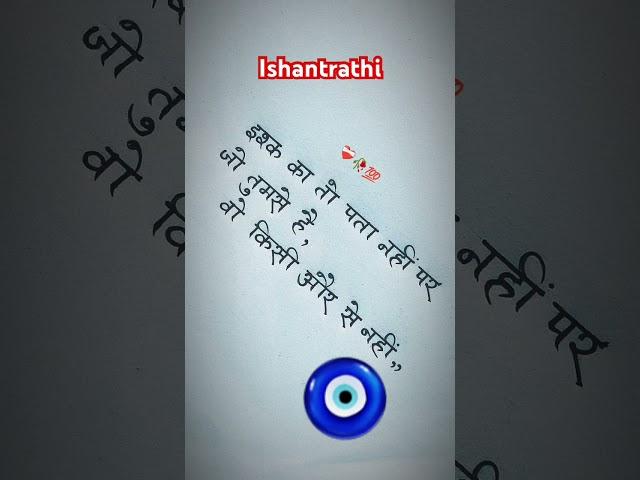 Ishantrathi
इश्क का तो पता नहीं पर
जो तुमसे है,
वो किसी और से नहीं,,